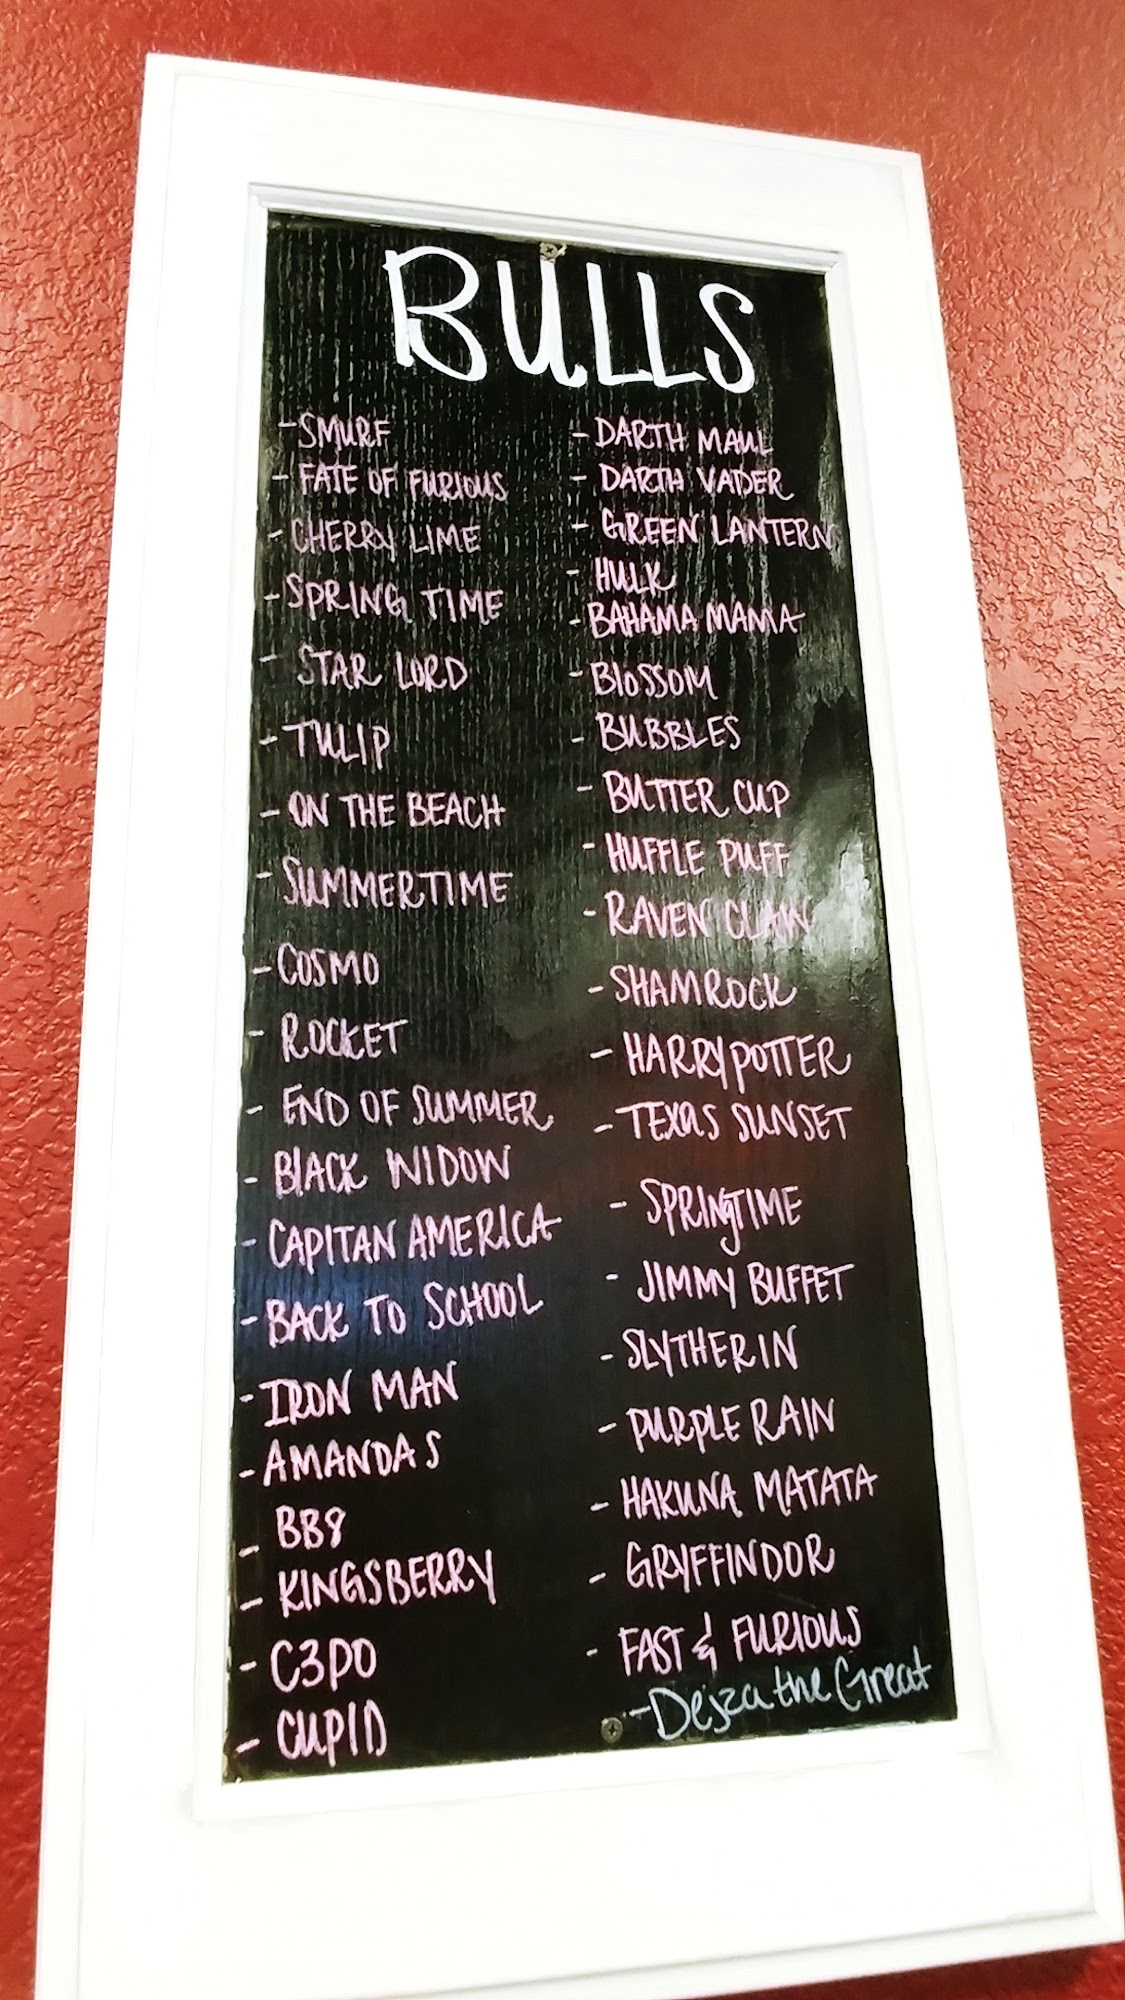 BULLS
- SMURF
- FATE OF FURIOUS
- CHERRY LIME
- SPRING TIME
- STAR LORD
- TULIP
- ON THE BEACH
- SUMMERTIME
- COSMO
- ROCKET
- END OF SUMMER
- BLACK WIDOW
- CAPITAN AMERICA
- BACK TO SCHOOL
- IRON MAN
- AMANDAS
- BB8
- KINGSBERRY
- C3PO
- CUPID
- DARTH MAUL
- DARTH VADER
- GREEN LANTERN
- HULK
- BAHAMA MAMA
- BlOSSOM
- BUBBLES
- BUTTER CUP
- HUFFLE PUFF
- RAVEN CLAW
- SHAMROCK
- HARRY POTTER
- TEXAS SUNSET
- SPRINGTIME
- JIMMY BUFFET
- SLYTHERIN
- PURPLE RAIN
- HAKUNA MATATA
- GRYFFINDOR
- FAST & FURIOUS
- Dejza the Great